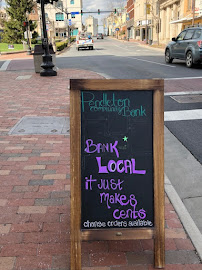 Pendleton
community bank
Bank
LOCAL
it just
makes
cents
change orders available